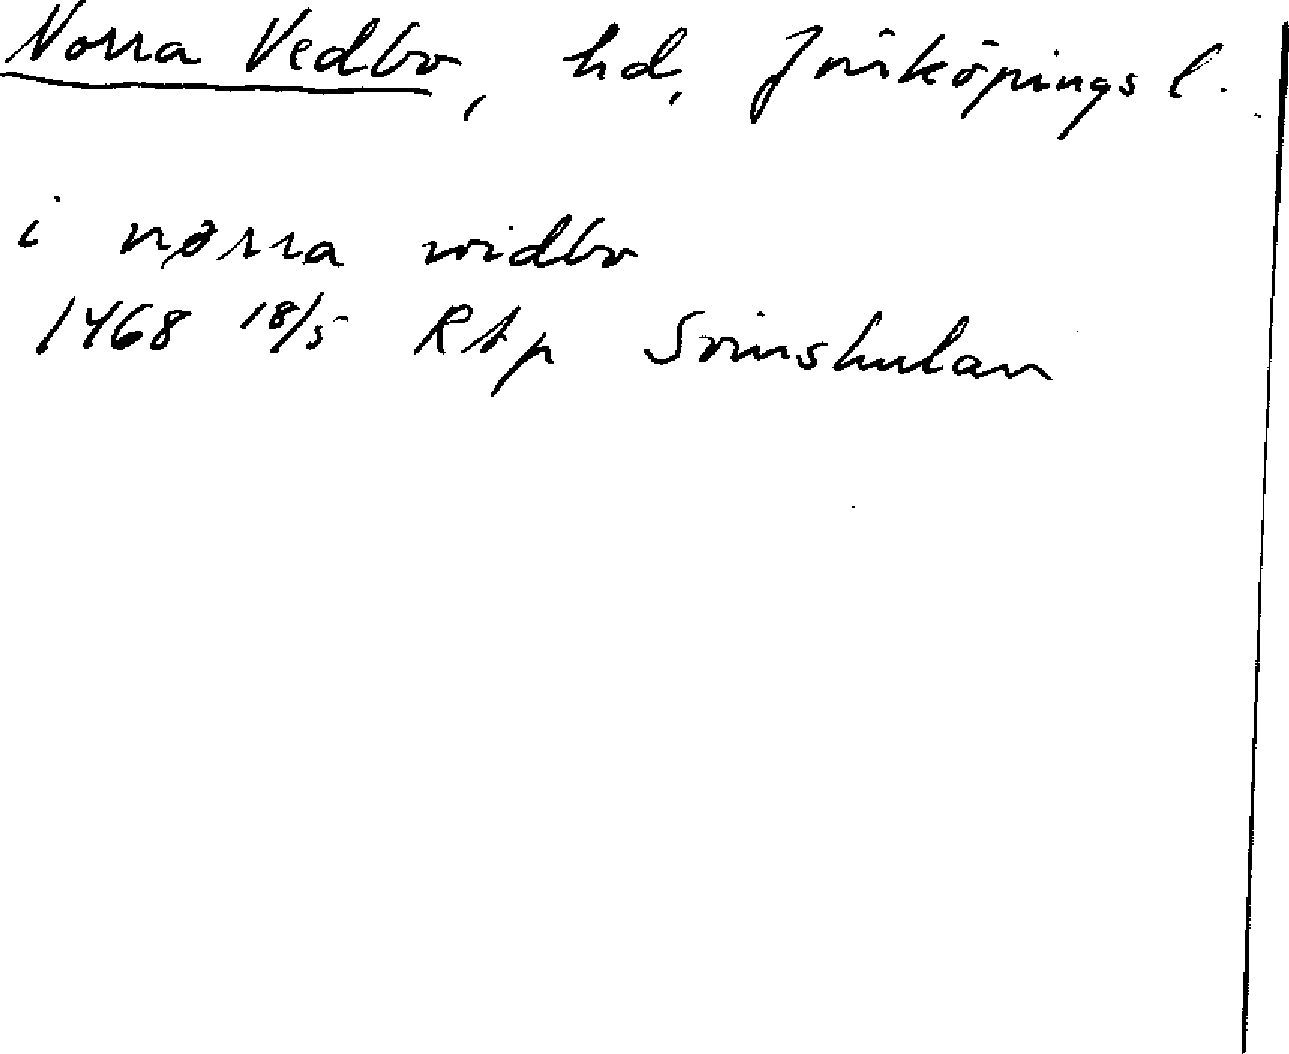 Norra Vedbo, hd, Jönköpings l.
i nørra widbo
1468 18/5 RAp Svinshulan